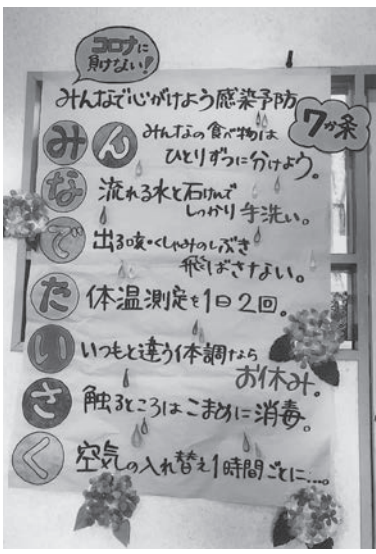 コロナに
負けない!
みんなで心がけよう感染予防
7か条
みん みんなの食べ物は
ひとりずつに分けよう。
な 流れる水と石けんで
しっかり手洗い。
で 出る咳・くしゃみのしぶき
飛ばさない。
た 体温測定を1日2回。
い いつもと違う体調なら
お休み。
さ 触るところはこまめに消毒。
く 空気の入れ替え1時間ごとに…。